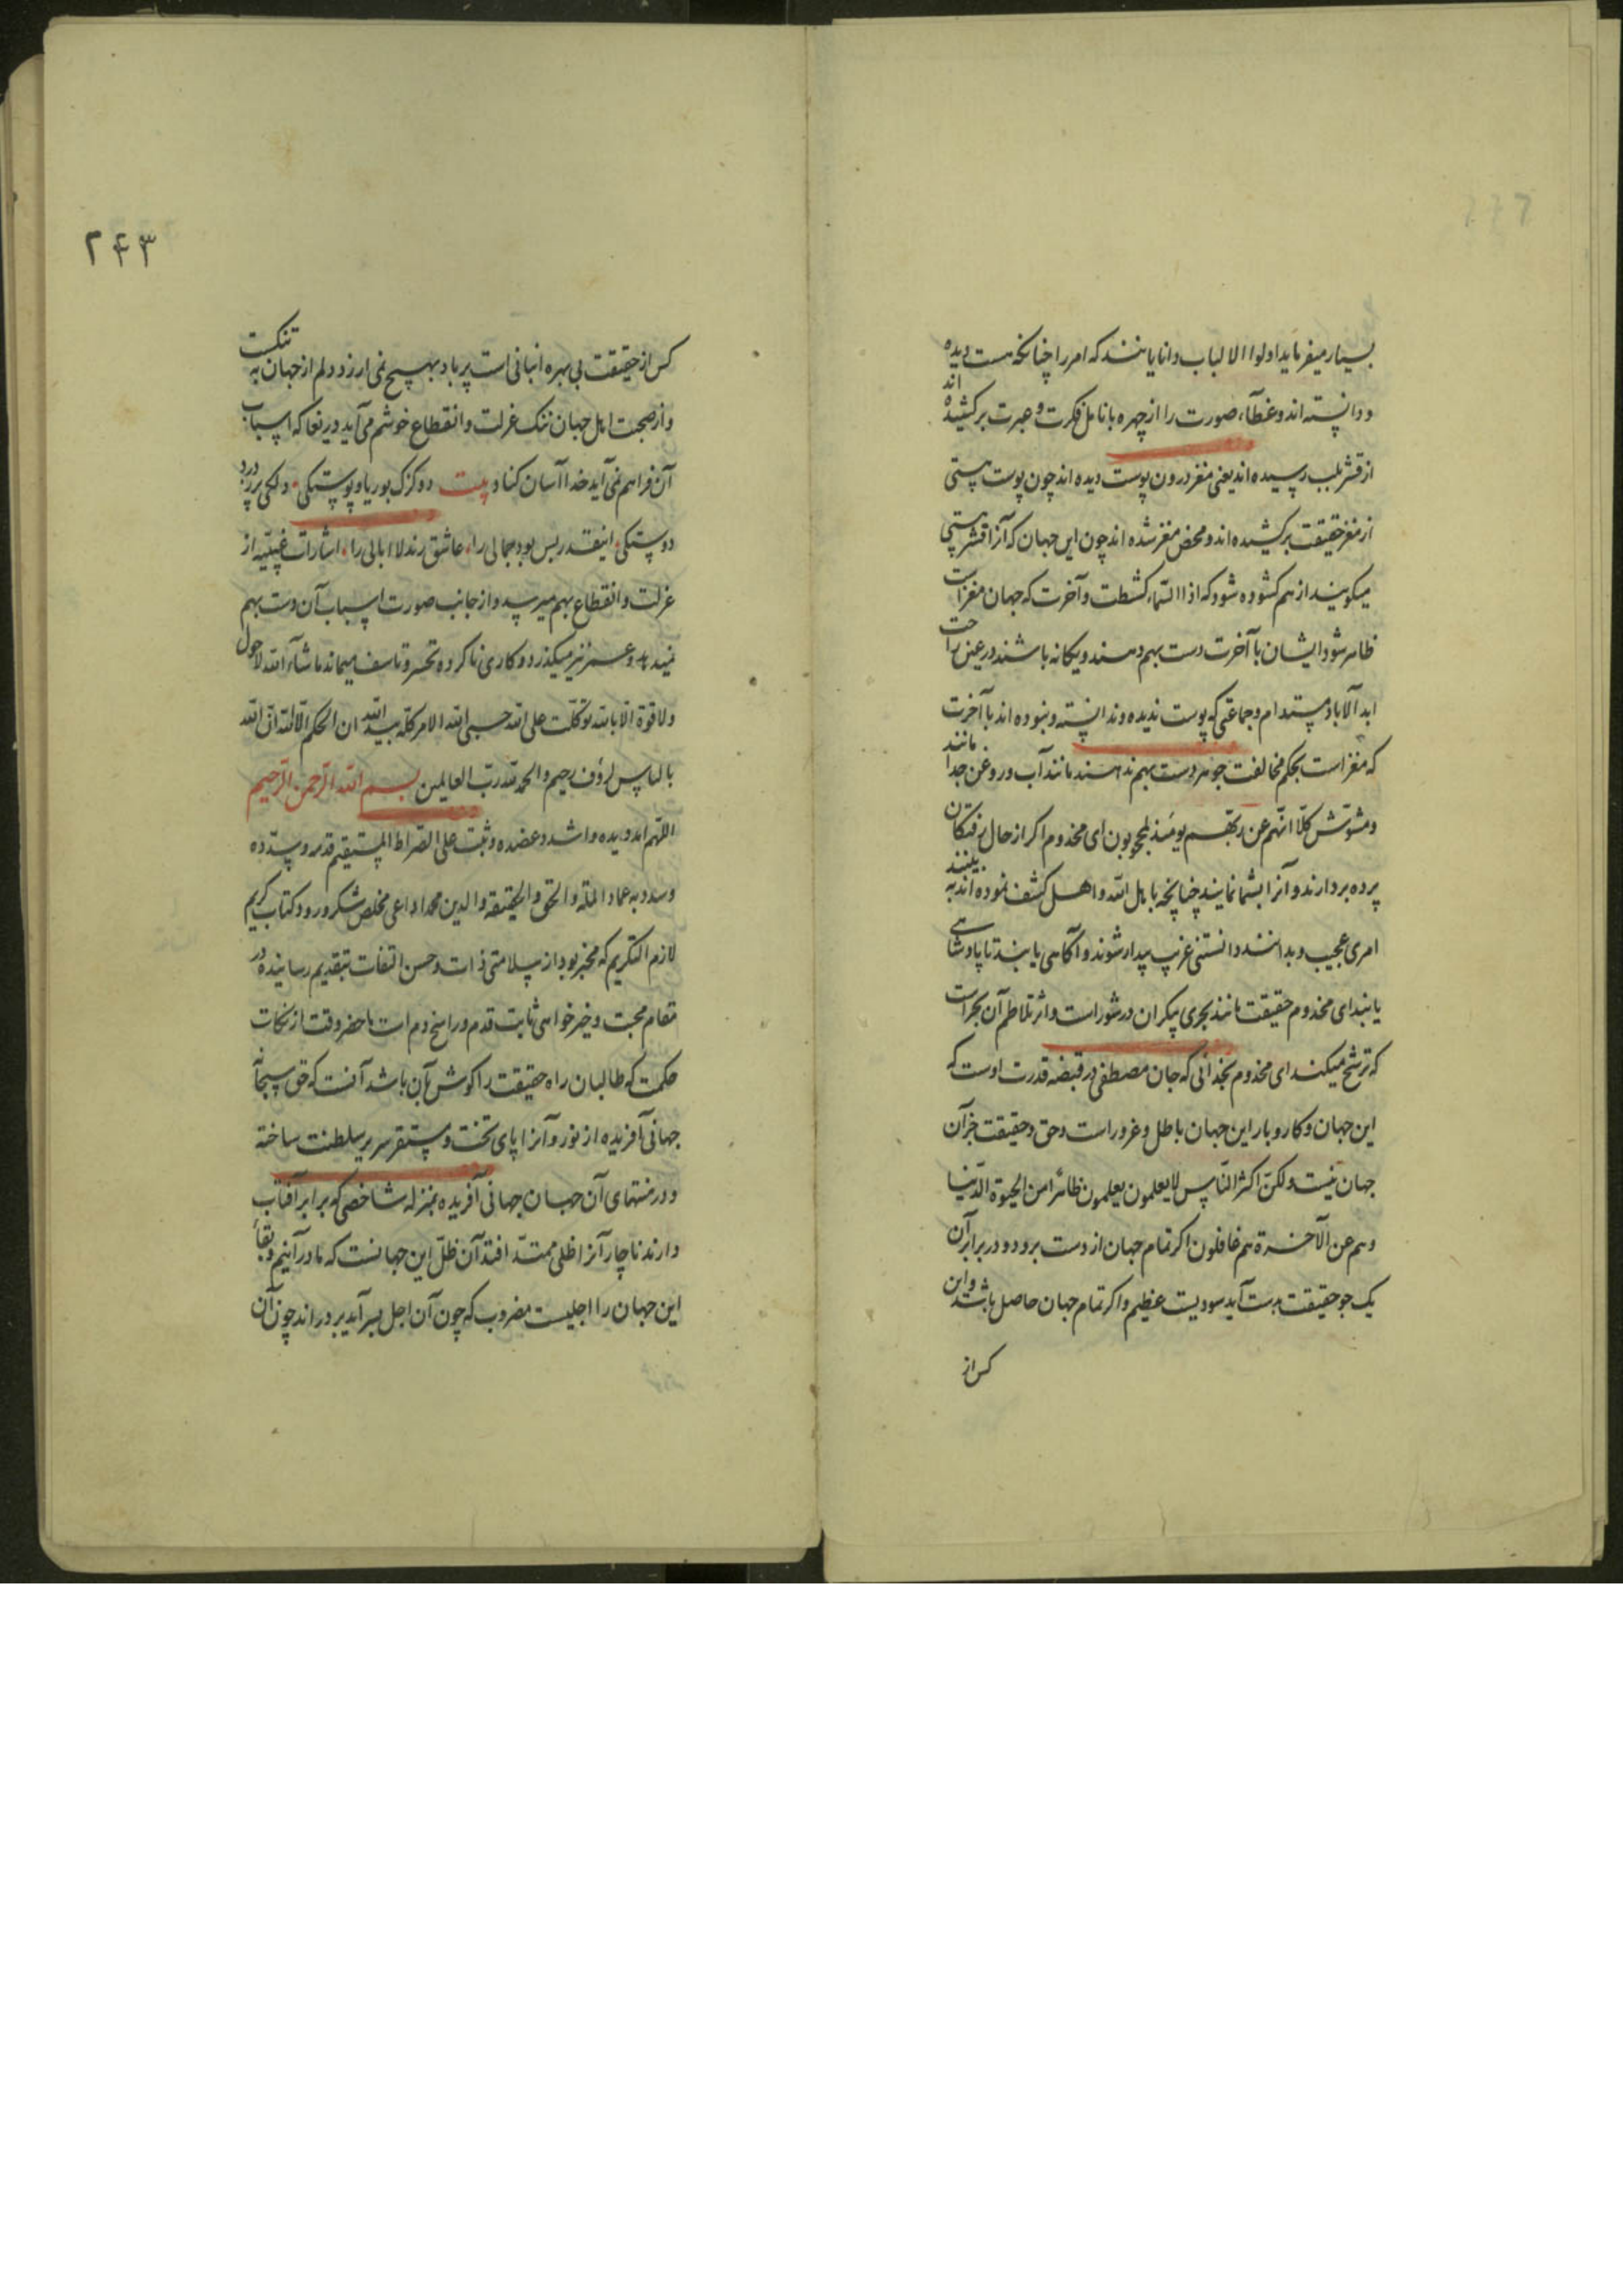 بسیار میفرماید اولوا الالباب دانایانند که امر را چنانکه هست دیده
و دانسته اند و غطآء صورت را از چهره بانامل فکرت و عبرت برکشیده اند
از قشر بلب رسیده اند یعنی مغز درون پوست دیده اند چون پوست هستی
از مغز حقیقت برکشیده اند و محض مغز شده اند چون این جهان که آنرا قشر هستی
میکویند از هم کشوده شود که اذا السّماء کشطت و آخرت که جهان مغزاست
ظاهر شود ایشان با آخرت دست بهم دهند و یکانه باشند در عین راحت
ابد آلاباد مستدام و جماعتی که پوست ندیده و ندانسته و نبوده اند با آخرت
که مغز است بحکم مخالفت جوهر دست بهم ندهند مانند آب و روغن جدا مانند
و مشوّش کلّا انّهم عن ربّهم یومئذ لمحجوبون ای مخدوم اکر از حال رفتکان
پرده بردارند و آنرا بشما نمایند چنانچه با اهل الله و اهل کشف نموده اند به بینند
امری عجیب و بدانند دانستنی غریب بیدار شوند و آکاهی یابند تا پادشاهی
یابند ای مخدوم حقیقت مانند بحری بیکران در شوراست و اثر تلاطم آن بحراست
که ترشّح میکند ای مخدوم بخدائی که جان مصطفی در قبضه قدرت اوست که
این جهان و کار و بار این جهان باطل و غرور است و حق و حقیقت جز آن
جهان نیست ولکنّ اکثر النّاس لایعلمون یعلمون ظاهرًا من الحیوة الدّنیا
و هم عن الآخرة هم غافلون اکر تمام جهان از دست برود و در برابر آن
یک جو حقیقت بدست آید سودیست عظیم و اکر تمام جهان حاصل باشد و این
کس از
۲۴۳
کس از حقیقت بی بهره انبانی است پر باد بهیچ نمی ارزد دلم از جهان به تنکست
و از صحبت اهل جهان ننک عزلت و انقطاع خوشم می آید دریغا که اسباب
آن فراهم نمی آید خدا آسان کناد بیت دو کزک بوریا و پوستکی دلکی پر ز درد
دوستکی اینقدر بس بود جمالی را عاشق رند لا ابالی را اشارات غیبیّه از
عزلت و انقطاع بهم میرسد و از جانب صورت اسباب آن دست بهم
نمیدهد و عمر نیز میکذرد و کاری ناکرده تحسّر و تاسف میماند ماشآء الله لاحول
ولا قوة الّا بالله توکّلت علی الله حسبی الله الامر کلّه بید الله ان الحکم الّا لله انّ الله
بالناس لرؤف رحیم والحمد لله ربّ العالمین بسم الله الرّحمن الرّحیم
اللّهمّ ایّد ویده واشدد عضده وثبّت علی الصّراط المستقیم قدمه وسدّده
عماد الملّة والحق والحقیقة والدین محمدا داعی مخلص شکر ورود کتاب کریم
لازم التکریم که مخبر بود از سلامتی ذات و حسن التفات بتقدیم رسانیده در
مقام محبت و خیر خواهی ثابت قدم و راسخ دم است ماحضر وقت از نکات
حکمت که طالبان راه حقیقت را کوش بآن باشد آنست که حق سبحانه
جهانی آفریده از نور و آنرا پای تخت و مستقر سریر سلطنت ساخته
و در منتهای آن جهان جهانی آفریده بمنزله شاخصی که برابر آفتاب
دارند ناچار آنرا ظلی ممتدّ افتد آن ظلّ این جهانست که ما در آنیم و بقآء
این جهان را اجلیست مضروب که چون آن اجل بسر آید بردراند چون آن